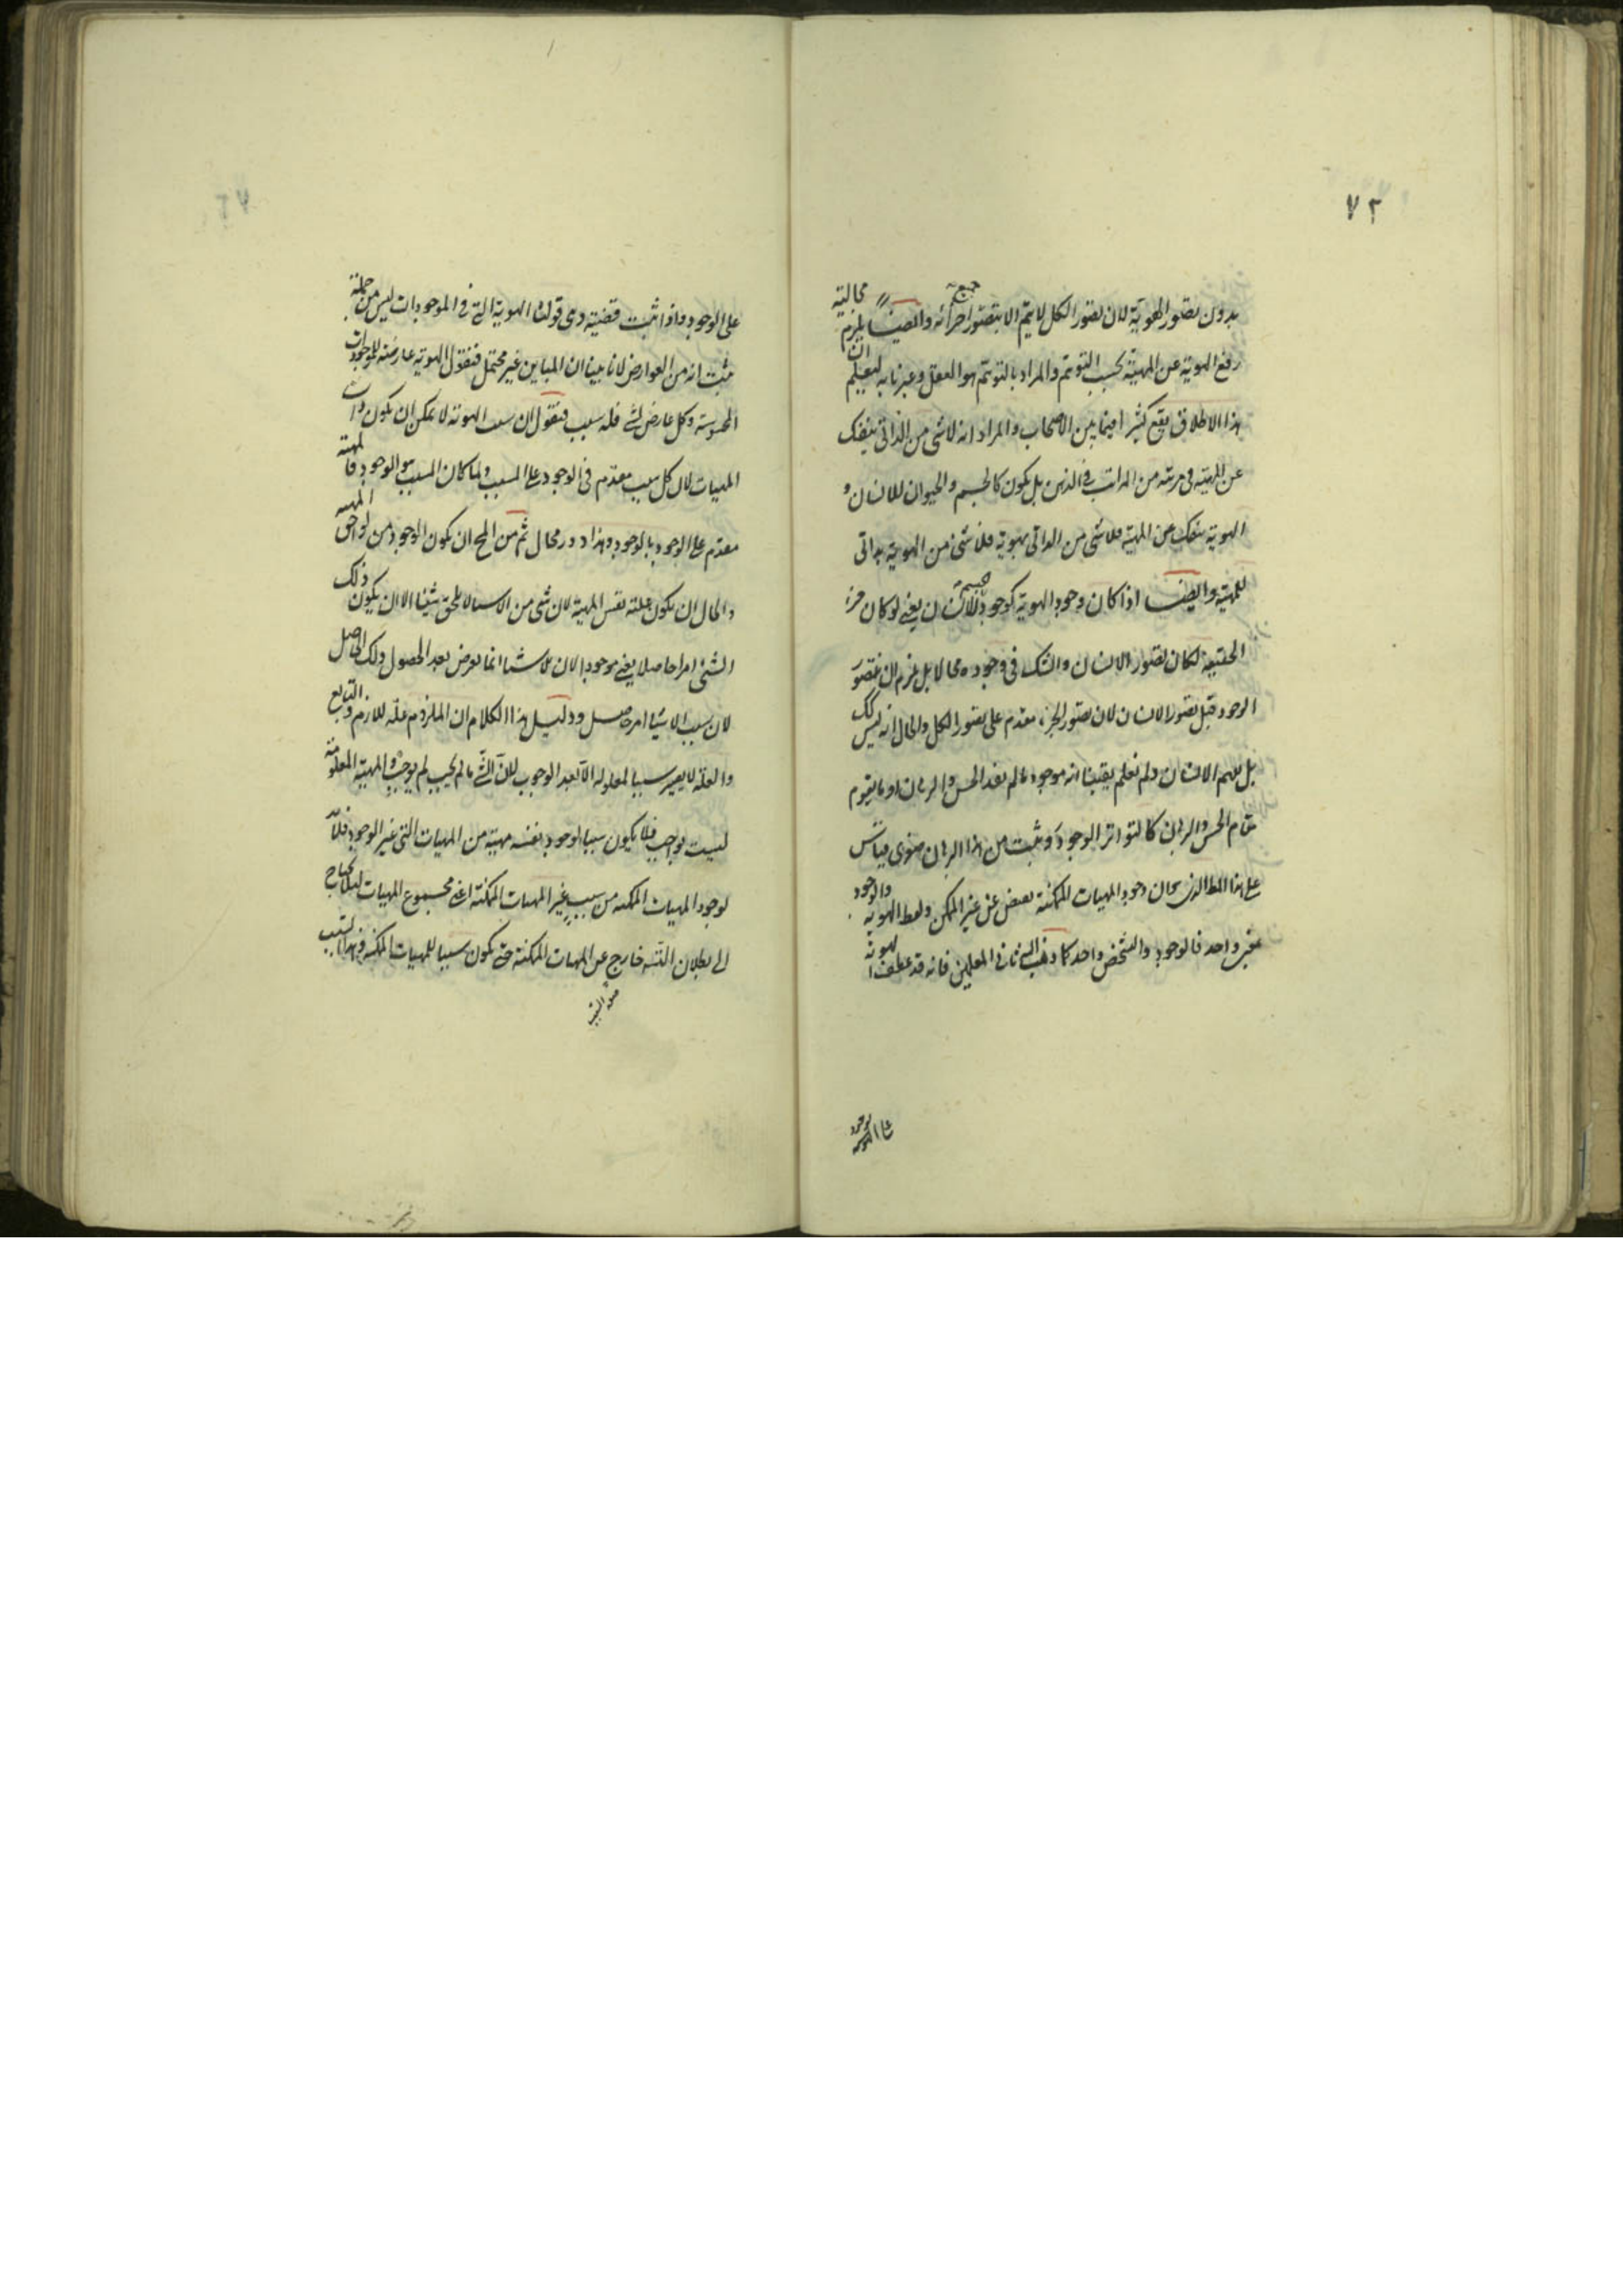 ٧٢
بدون تصور الهوية لان تصور الكل لا يتم الا بتصور جميع اجزائه وايضا يلزم محالية
رفع الهوية عن المهية بحسب التوهم والمراد بالتوهم هو التعقل وعبرنا به ليعلم ان
هذا الاطلاق يقع كثيرا فيما بين الاصحاب والمراد انه لا شئ من الذاتى ينفك
عن المهية فى مرتبة من المراتب فى الذهن بل يكون كالجسم والحيوان للانسان و
الهوية ينفك عن المهية فلا شئ من الذاتى بهوية فلا شئ من الهوية بذاتى
للمهية وايضا اذا كان وجود الهوية كوجود جسمية الانسان يعنى لو كان جزء
الحقيقة لكان تصور الانسان والشك فى وجوده محالا بل يلزم ان يتصور
الوجود قبل تصور الانسان لان تصور الجزء مقدم على تصور الكل والحال انه ليس كك
بل نفهم الانسان ولم نعلم يقينا انه موجود ما لم يفد الحس والبرهان او ما يقوم
مقام الحس والبرهان كالتواتر الوجود وثبت من هذا البرهان صغرى قياس
على هذا المط الذى وجود المهيات الممكنة عن غير الممكن ولفظ الهوية والوجود
واحد فالوجود والتشخص واحد كما ذهب اليه ثانى المعلمين فانه قد عطف الهوية
على الوجود واذا ثبت قضية وى قولنا الهوية التى فى الموجودات ليس من جملة
مثبت انه من العوارض لانا بينا ان المباين غير محتمل فنقول الهوية عارضة للموجودات
المحسوسة وكل عارض لشئ فله سبب فنقول ان سبب الهوية لا يمكن ان يكون ذات
المهيات لان كل سبب مقدم فى الوجود على المسبب ولما كان المسبب هو الوجود فالمهية
مقدم على الوجود بالوجود وهذا دور محال ثم من المح ان يكون الوجود من لواحق المهية
والحال ان يكون علته نفس المهية لان شئ من الاسباب لا يلحق شيئا الا ان يكون ذلك
الشئ امرا حاصلا يعنى موجودا لان انما يعرض بعد الحصول ولك الحاصل
لان سبب الاشياء امر حاصل ودليل هذا الكلام ان الملزوم علة للازم التابع
والعلة لا يصير سببا لمعلوله الا بعد الوجوب لان الشئ ما لم يجب لم يوجد والمهية المعلومة
ليست بواجب فلا يكون سببا لوجود بنفسه مهية من المهيات التى غير الوجود فلابد
لوجود المهيات الممكنة من سبب غير المهيات الممكنة اعنى مجموع المهيات لئلا يحتاج
الى بطلان التسلسل خارج عن المهيات الممكنة حتى يكون سببا للمهيات الممكنة